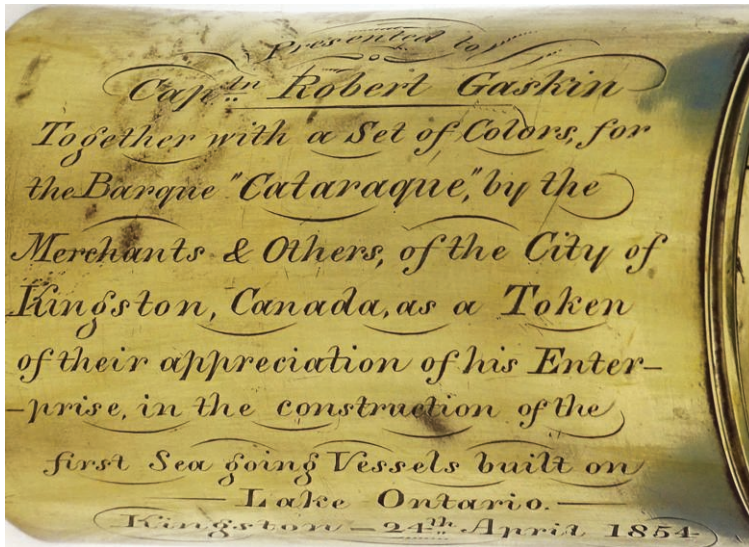 Presented to
Cap:tn Robert Gaskin
Together with a Set of Colors, for
the Barque "Cataraque", by the
Merchants & Others, of the City of
Kingston, Canada, as a Token
of their appreciation of his Enter-
-prise, in the construction of the
first Sea going Vessels built on
Lake Ontario.
Kingston - 24th April 1854